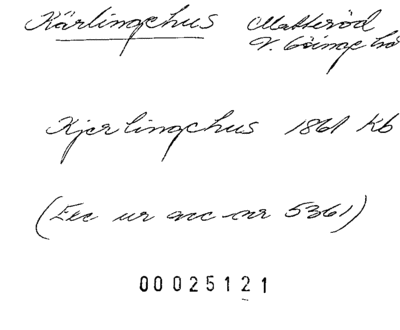 Kärlingehus Matteröd
V. Göinge hd
Kjerlingehus 1861 Kb
(Exc ur acc-nr 5361)
00025121